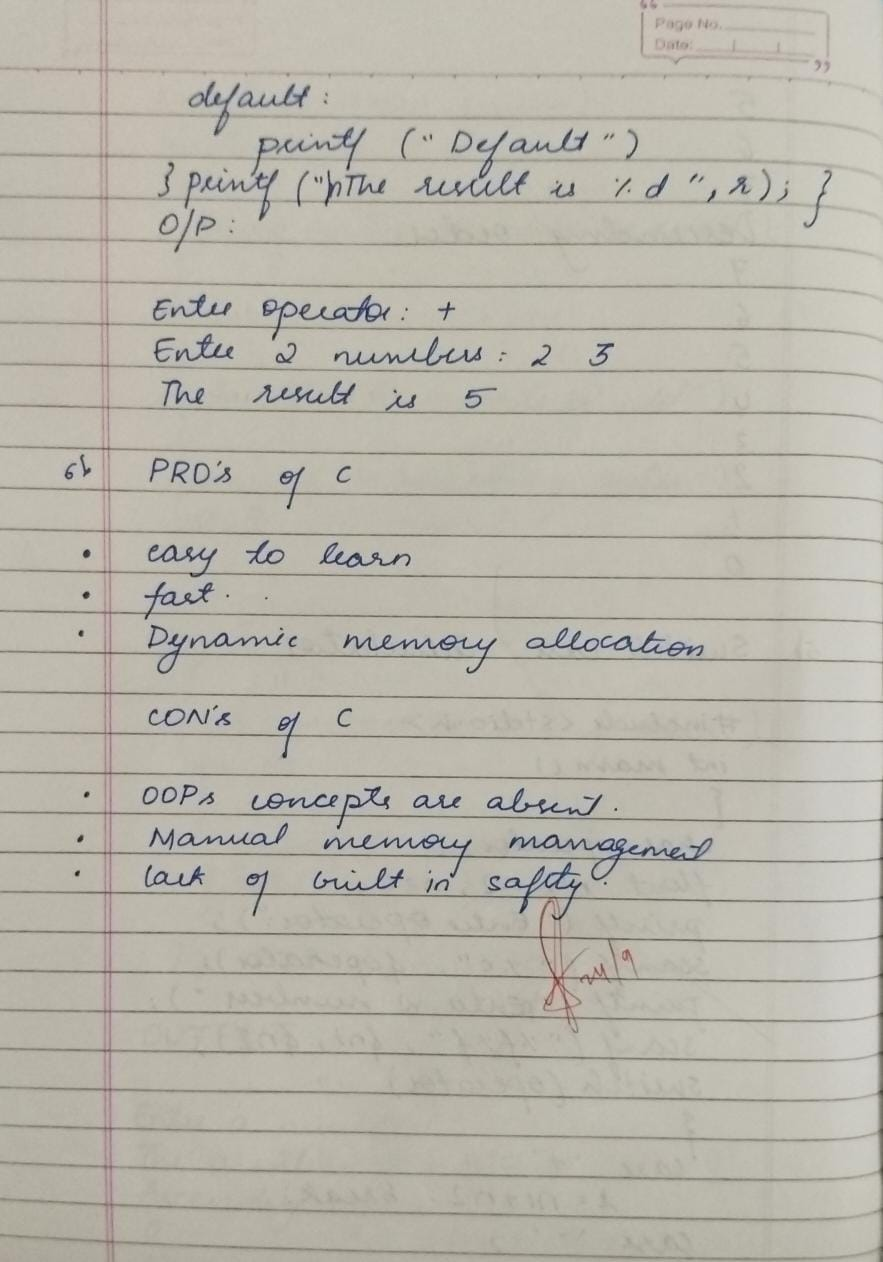 Page No.
Date:
default :
printf (" Default ")
} printf ("\nThe result is %d ", r); }
O/P :
Enter operator : +
Enter 2 numbers : 2 3
The result is 5
6) PRO's of C
• easy to learn
• fast.
• Dynamic memory allocation
CON's of C
• OOPs concepts are absent.
• Manual memory management
• lack of built in safety.
24/9